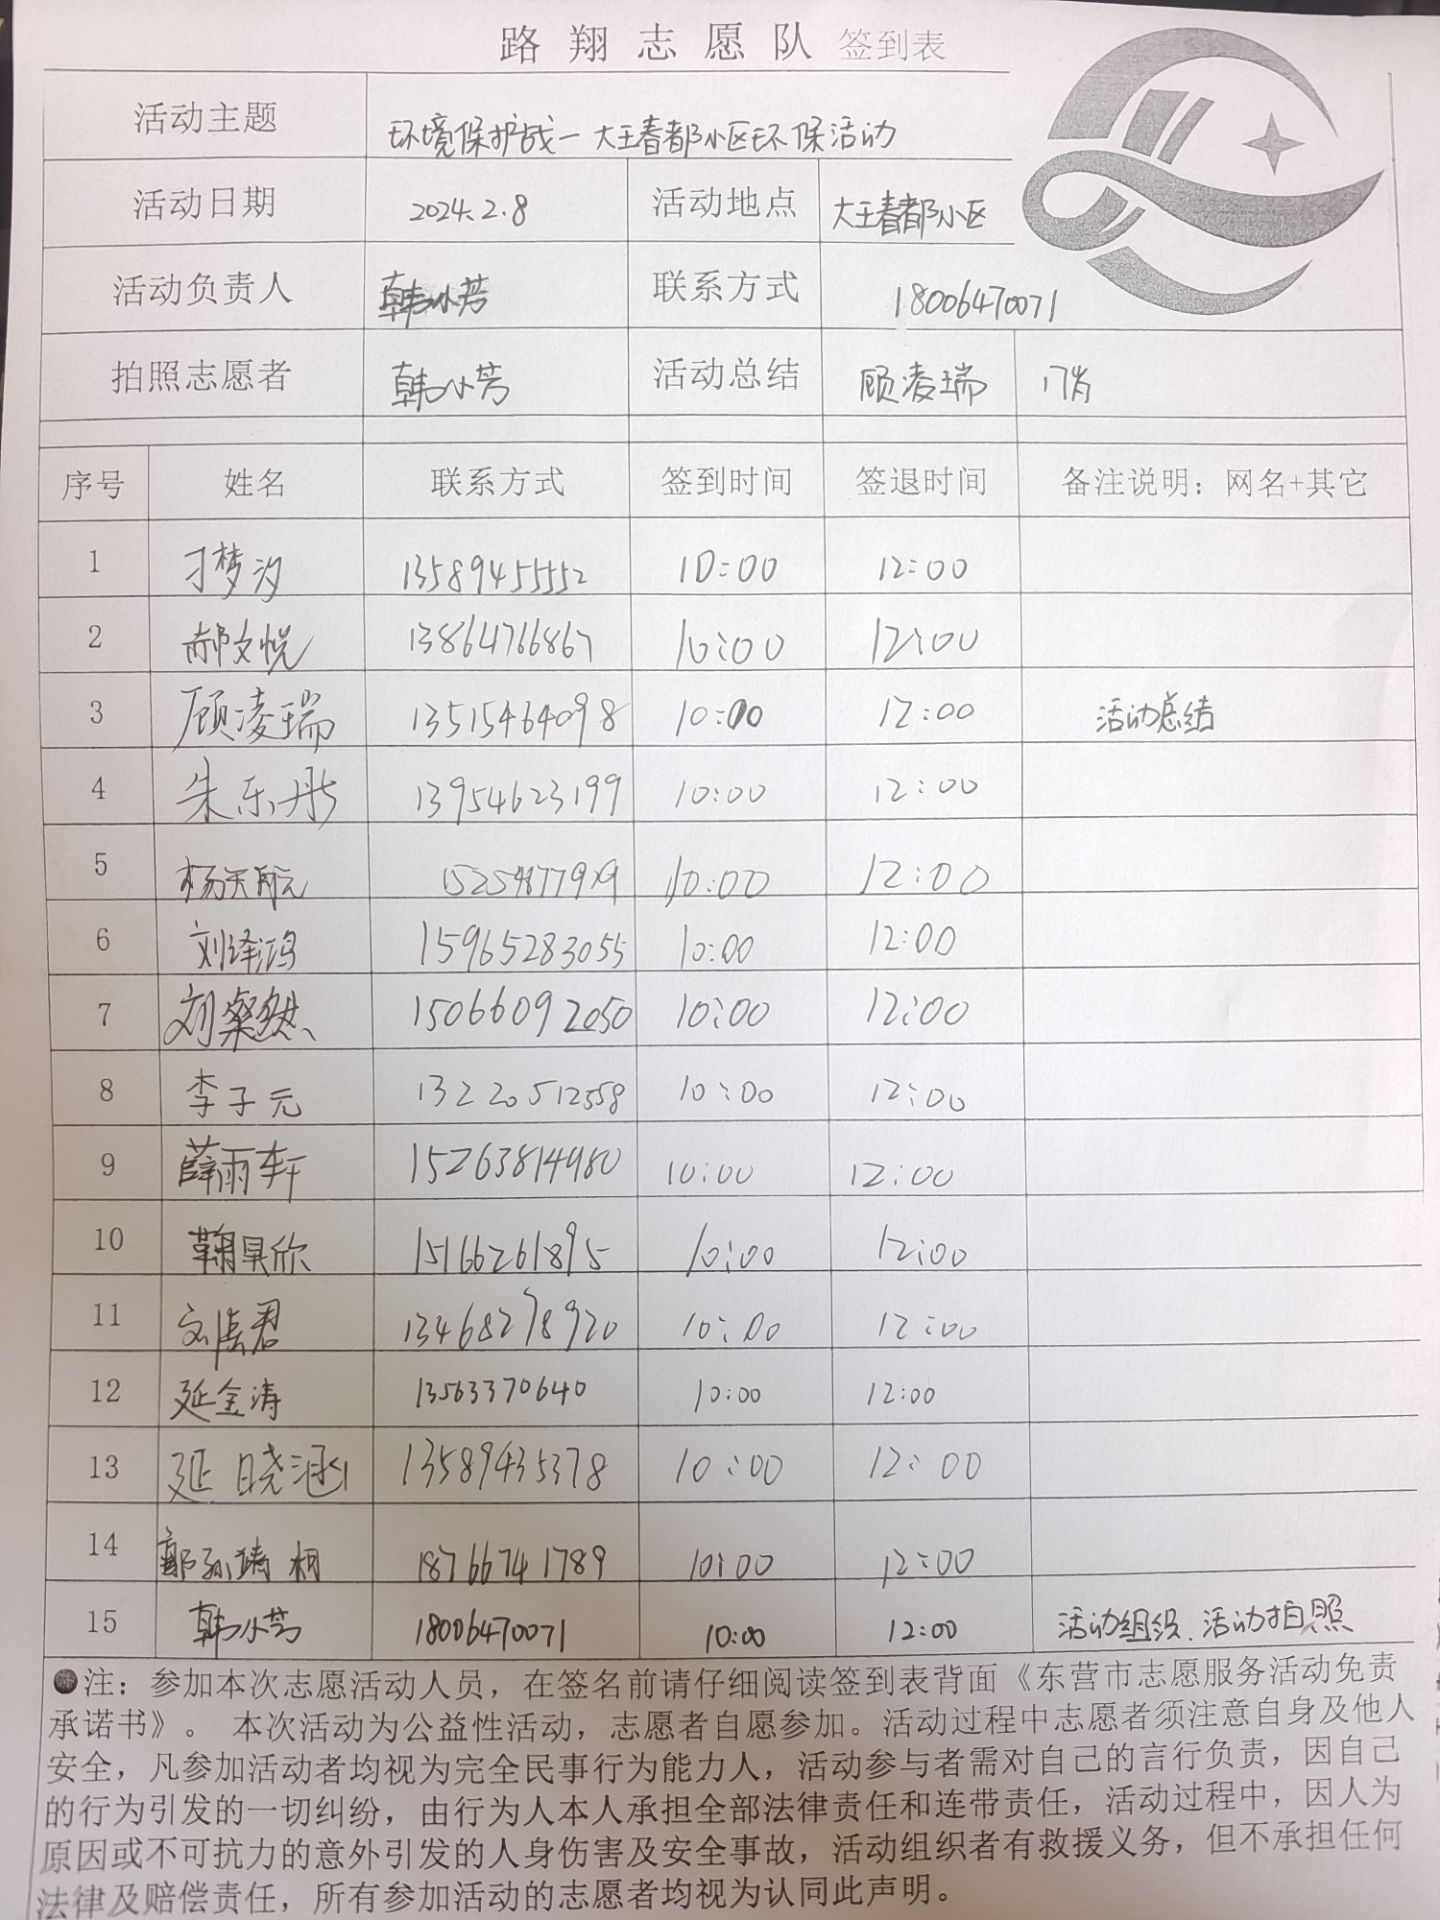 路翔志愿队 签到表
活动主题 环境保护战一大王春都小区环保活动
活动日期 2024.2.8 活动地点 大王春都小区
活动负责人 韩小芳 联系方式 18006470071
拍照志愿者 韩小芳 活动总结 顾凌瑞 17岁
序号 姓名 联系方式 签到时间 签退时间 备注说明：网名+其它
1 刁梦汐 13589455552 10:00 12:00
2 郝文悦 13864766867 10:00 12:00
3 顾凌瑞 13515464098 10:00 12:00 活动总结
4 朱乐彤 13954623199 10:00 12:00
5 杨天航 10:00 12:00
6 刘泽鸿 15965283055 10:00 12:00
7 刘燊 15066092050 10:00 12:00
8 李子元 13220512558 10:00 12:00
9 薛雨轩 15263814980 10:00 12:00
10 鞠昊欣 15166261895 10:00 12:00
11 君 13468278920 10:00 12:00
12 延金涛 13563370640 10:00 12:00
13 延晓涵 13589435378 10:00 12:00
14 18766741789 10:00 12:00
15 韩小芳 18006470071 10:00 12:00 活动组织、活动拍照
●注：参加本次志愿活动人员，在签名前请仔细阅读签到表背面《东营市志愿服务活动免责
承诺书》。 本次活动为公益性活动，志愿者自愿参加。活动过程中志愿者须注意自身及他人
安全，凡参加活动者均视为完全民事行为能力人，活动参与者需对自己的言行负责，因自己
的行为引发的一切纠纷，由行为人本人承担全部法律责任和连带责任，活动过程中，因人为
原因或不可抗力的意外引发的人身伤害及安全事故，活动组织者有救援义务，但不承担任何
法律及赔偿责任，所有参加活动的志愿者均视为认同此声明。